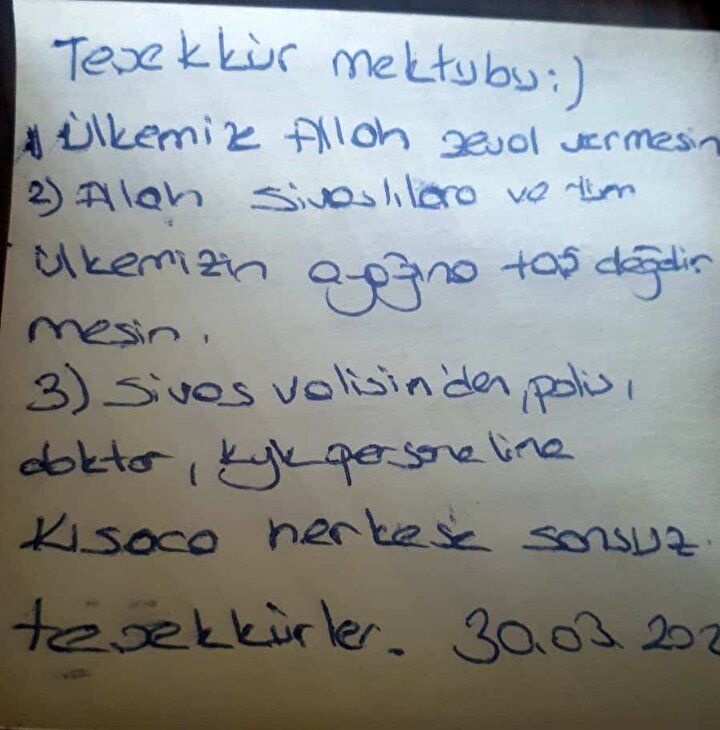 Teşekkür mektubu:)
1 ülkemize Allah zeval vermesin
2) Allah Sivaslılara ve tüm
ülkemizin ayağına taş değdir
mesin.
3) Sivas valisin'den, polis,
doktor, kyk personeline
Kısaca herkese sonsuz
teşekkürler. 30.03.202